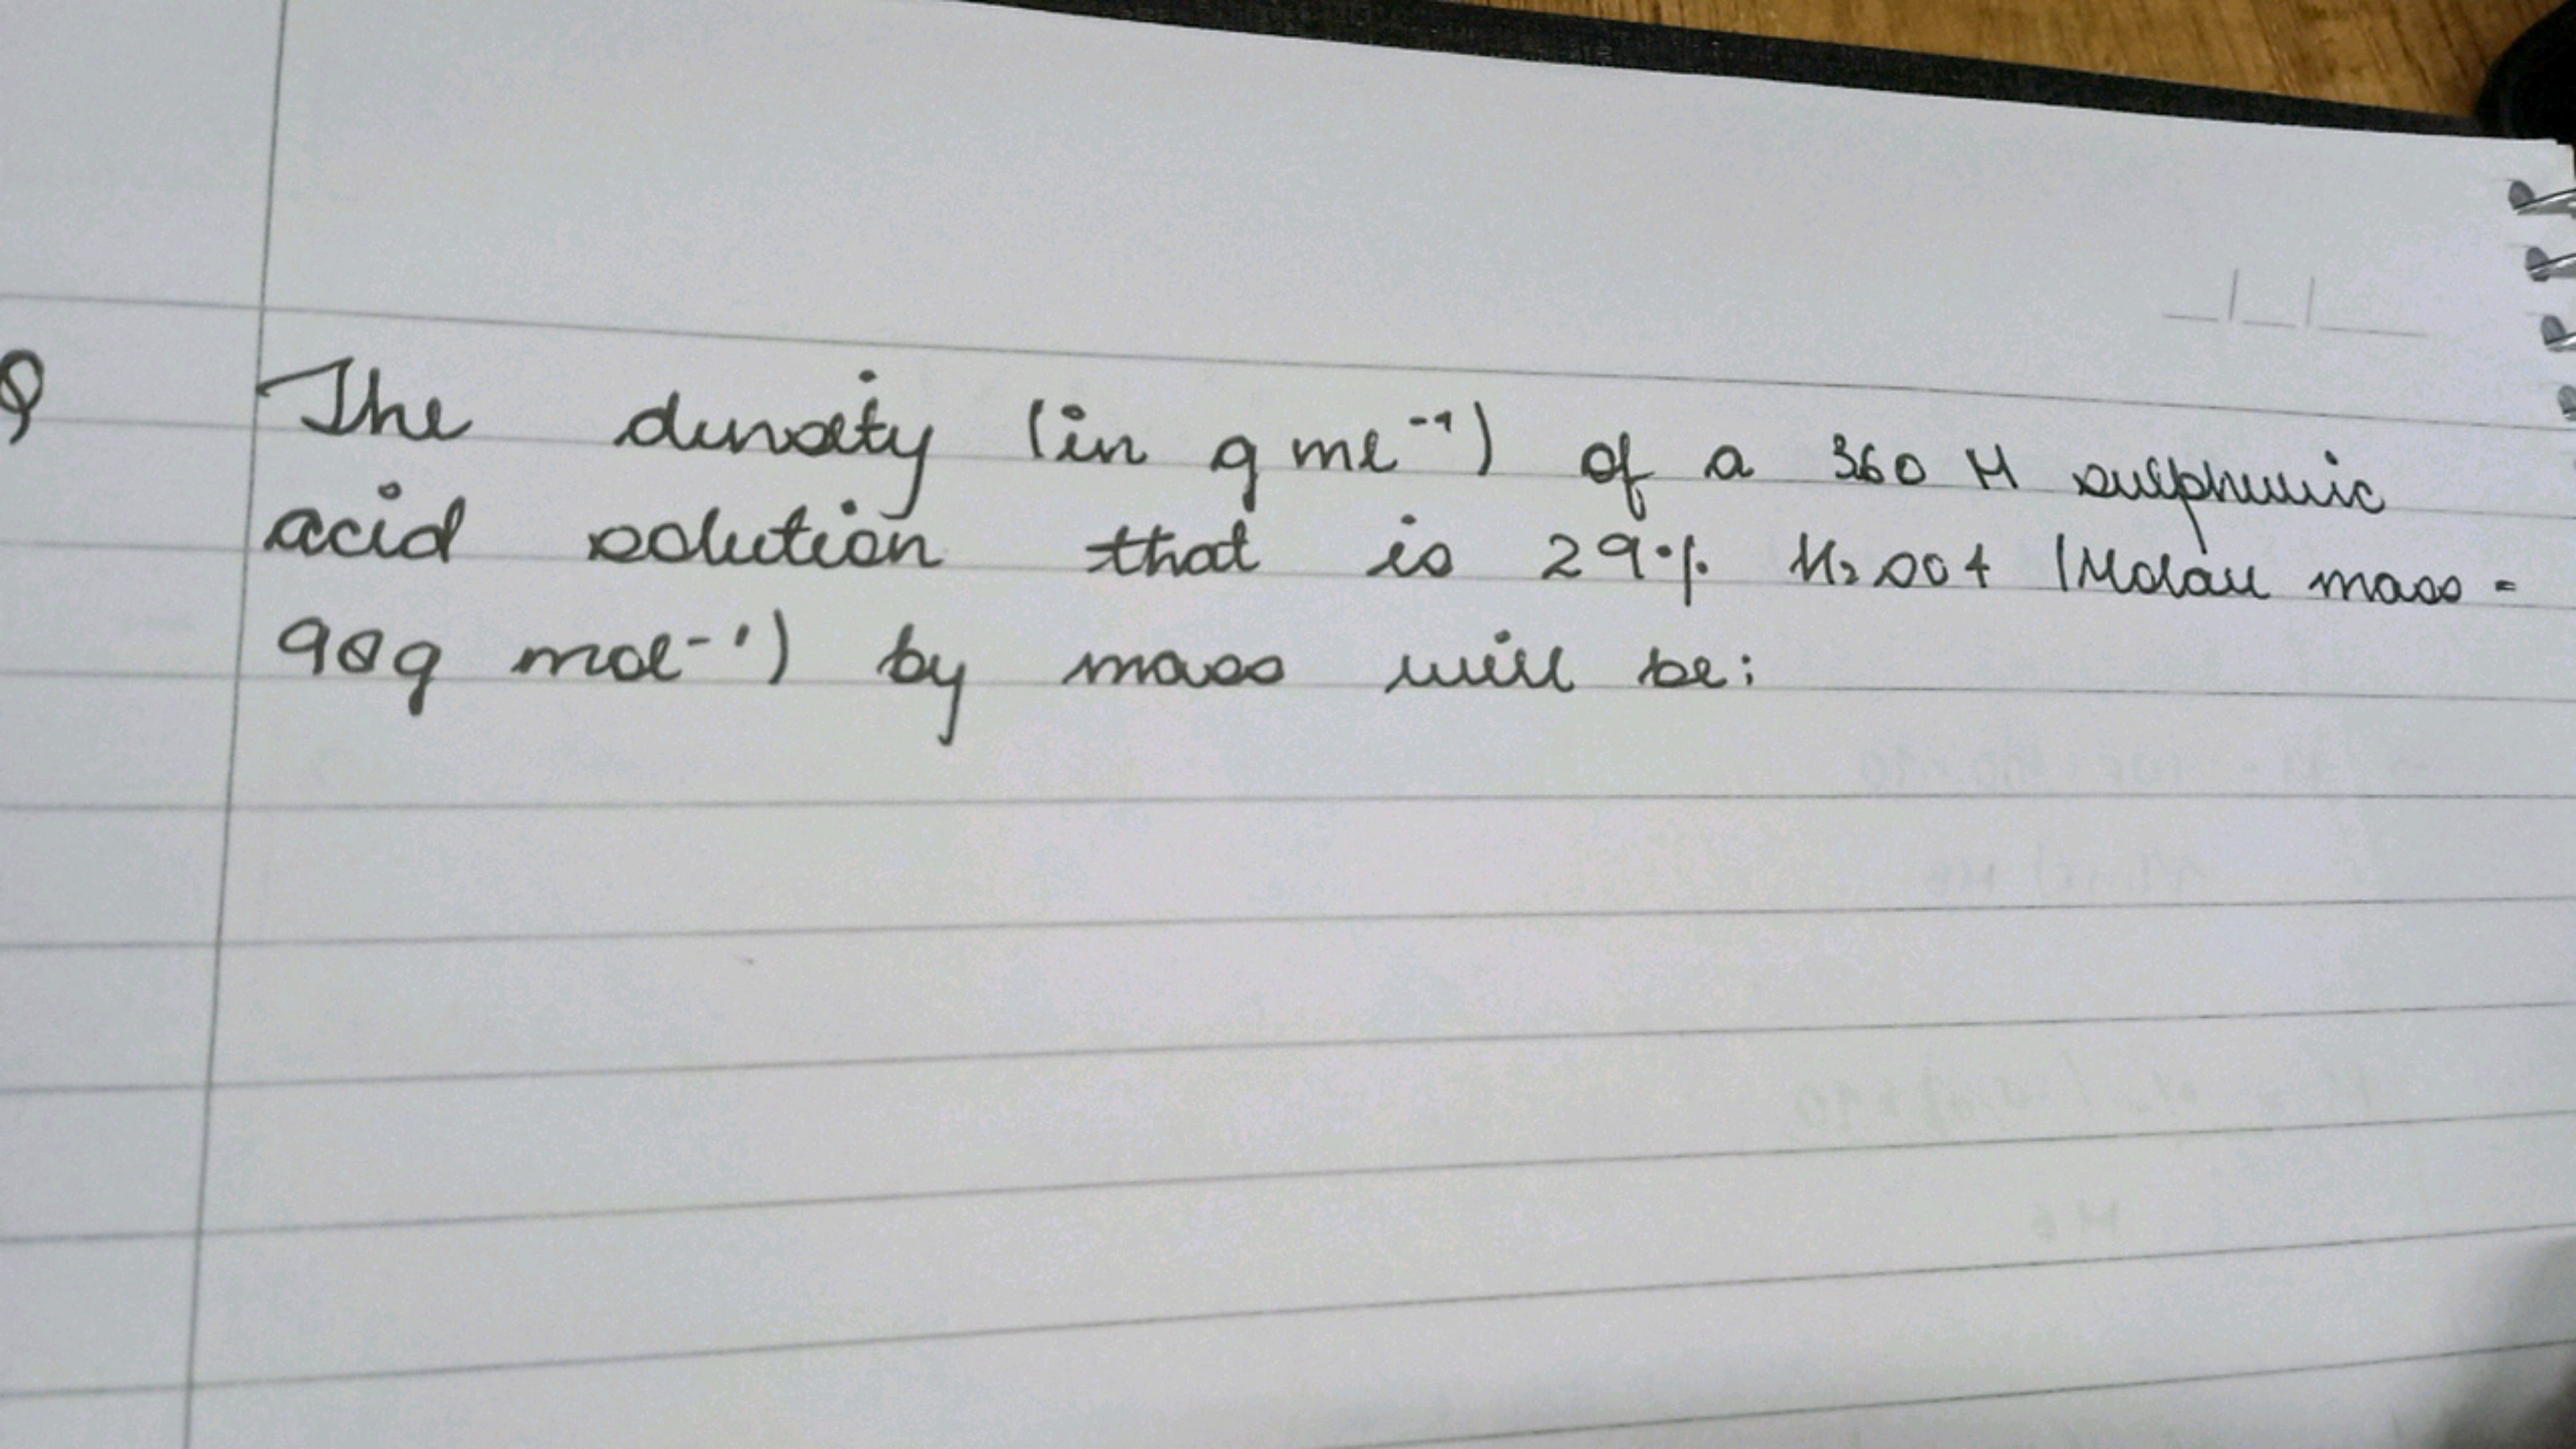 Q The density (in g ml⁻¹) of a 360 M sulphuric
acid solution that is 29% H₂SO4 (Molar mass =
98g mol⁻¹) by mass will be: